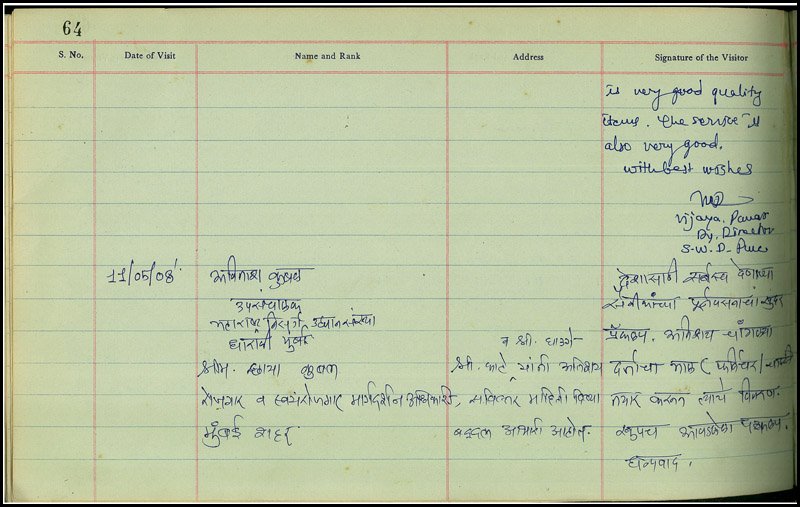 64
S. No. Date of Visit Name and Rank Address Signature of the Visitor
is very good quality
items. The service is
also very good.
with best wishes
Vijaya. Pawar
Dy. Director
S.W.D. Pune
11/05/08 अविनाश कुबल
उपसंचालक
महाराष्ट्र निसर्ग उद्यान संस्था
धारावी मुंबई
श्रीम. छाया कुबल
रोजगार व स्वयंरोजगार मार्गदर्शन अधिकारी,
मुंबई शहर
व श्री.
श्री. यांनी अतिशय
सविस्तर माहिती दिल्या
बद्दल आभारी आहोत.
देशासाठी सर्वस्व देणाऱ्या
सैनिकांच्या पुनर्वसनाचा सुंदर
प्रकल्प. अतिशय चांगल्या
दर्जाचा माल (फर्निचर/
तयार करून त्याचे वितरण.
खूपच आवडलेला प्रकल्प.
धन्यवाद.